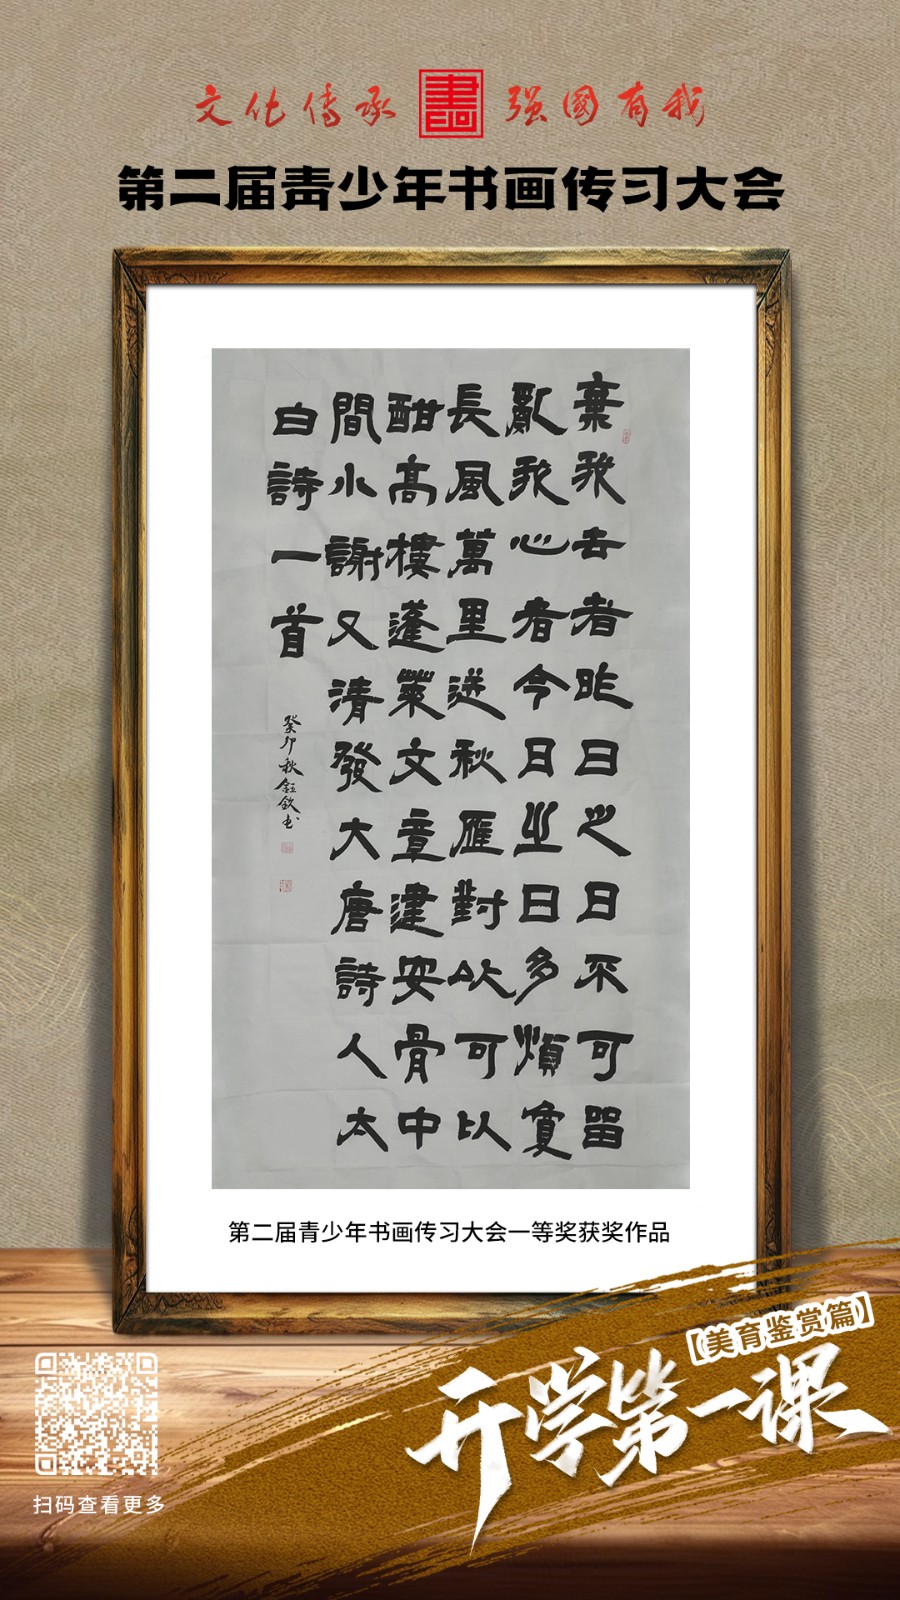 文化传承 强國有我
第二届青少年书画传习大会
棄我去者昨日之日不可留
亂我心者今日之日多煩憂
長風萬里送秋雁對此可以
酣高樓蓬萊文章建安骨中
間小謝又清發大唐詩人太
白詩一首
癸卯秋鈺欽书
第二届青少年书画传习大会一等奖获奖作品
【美育鉴赏篇】
开学第一课
扫码查看更多